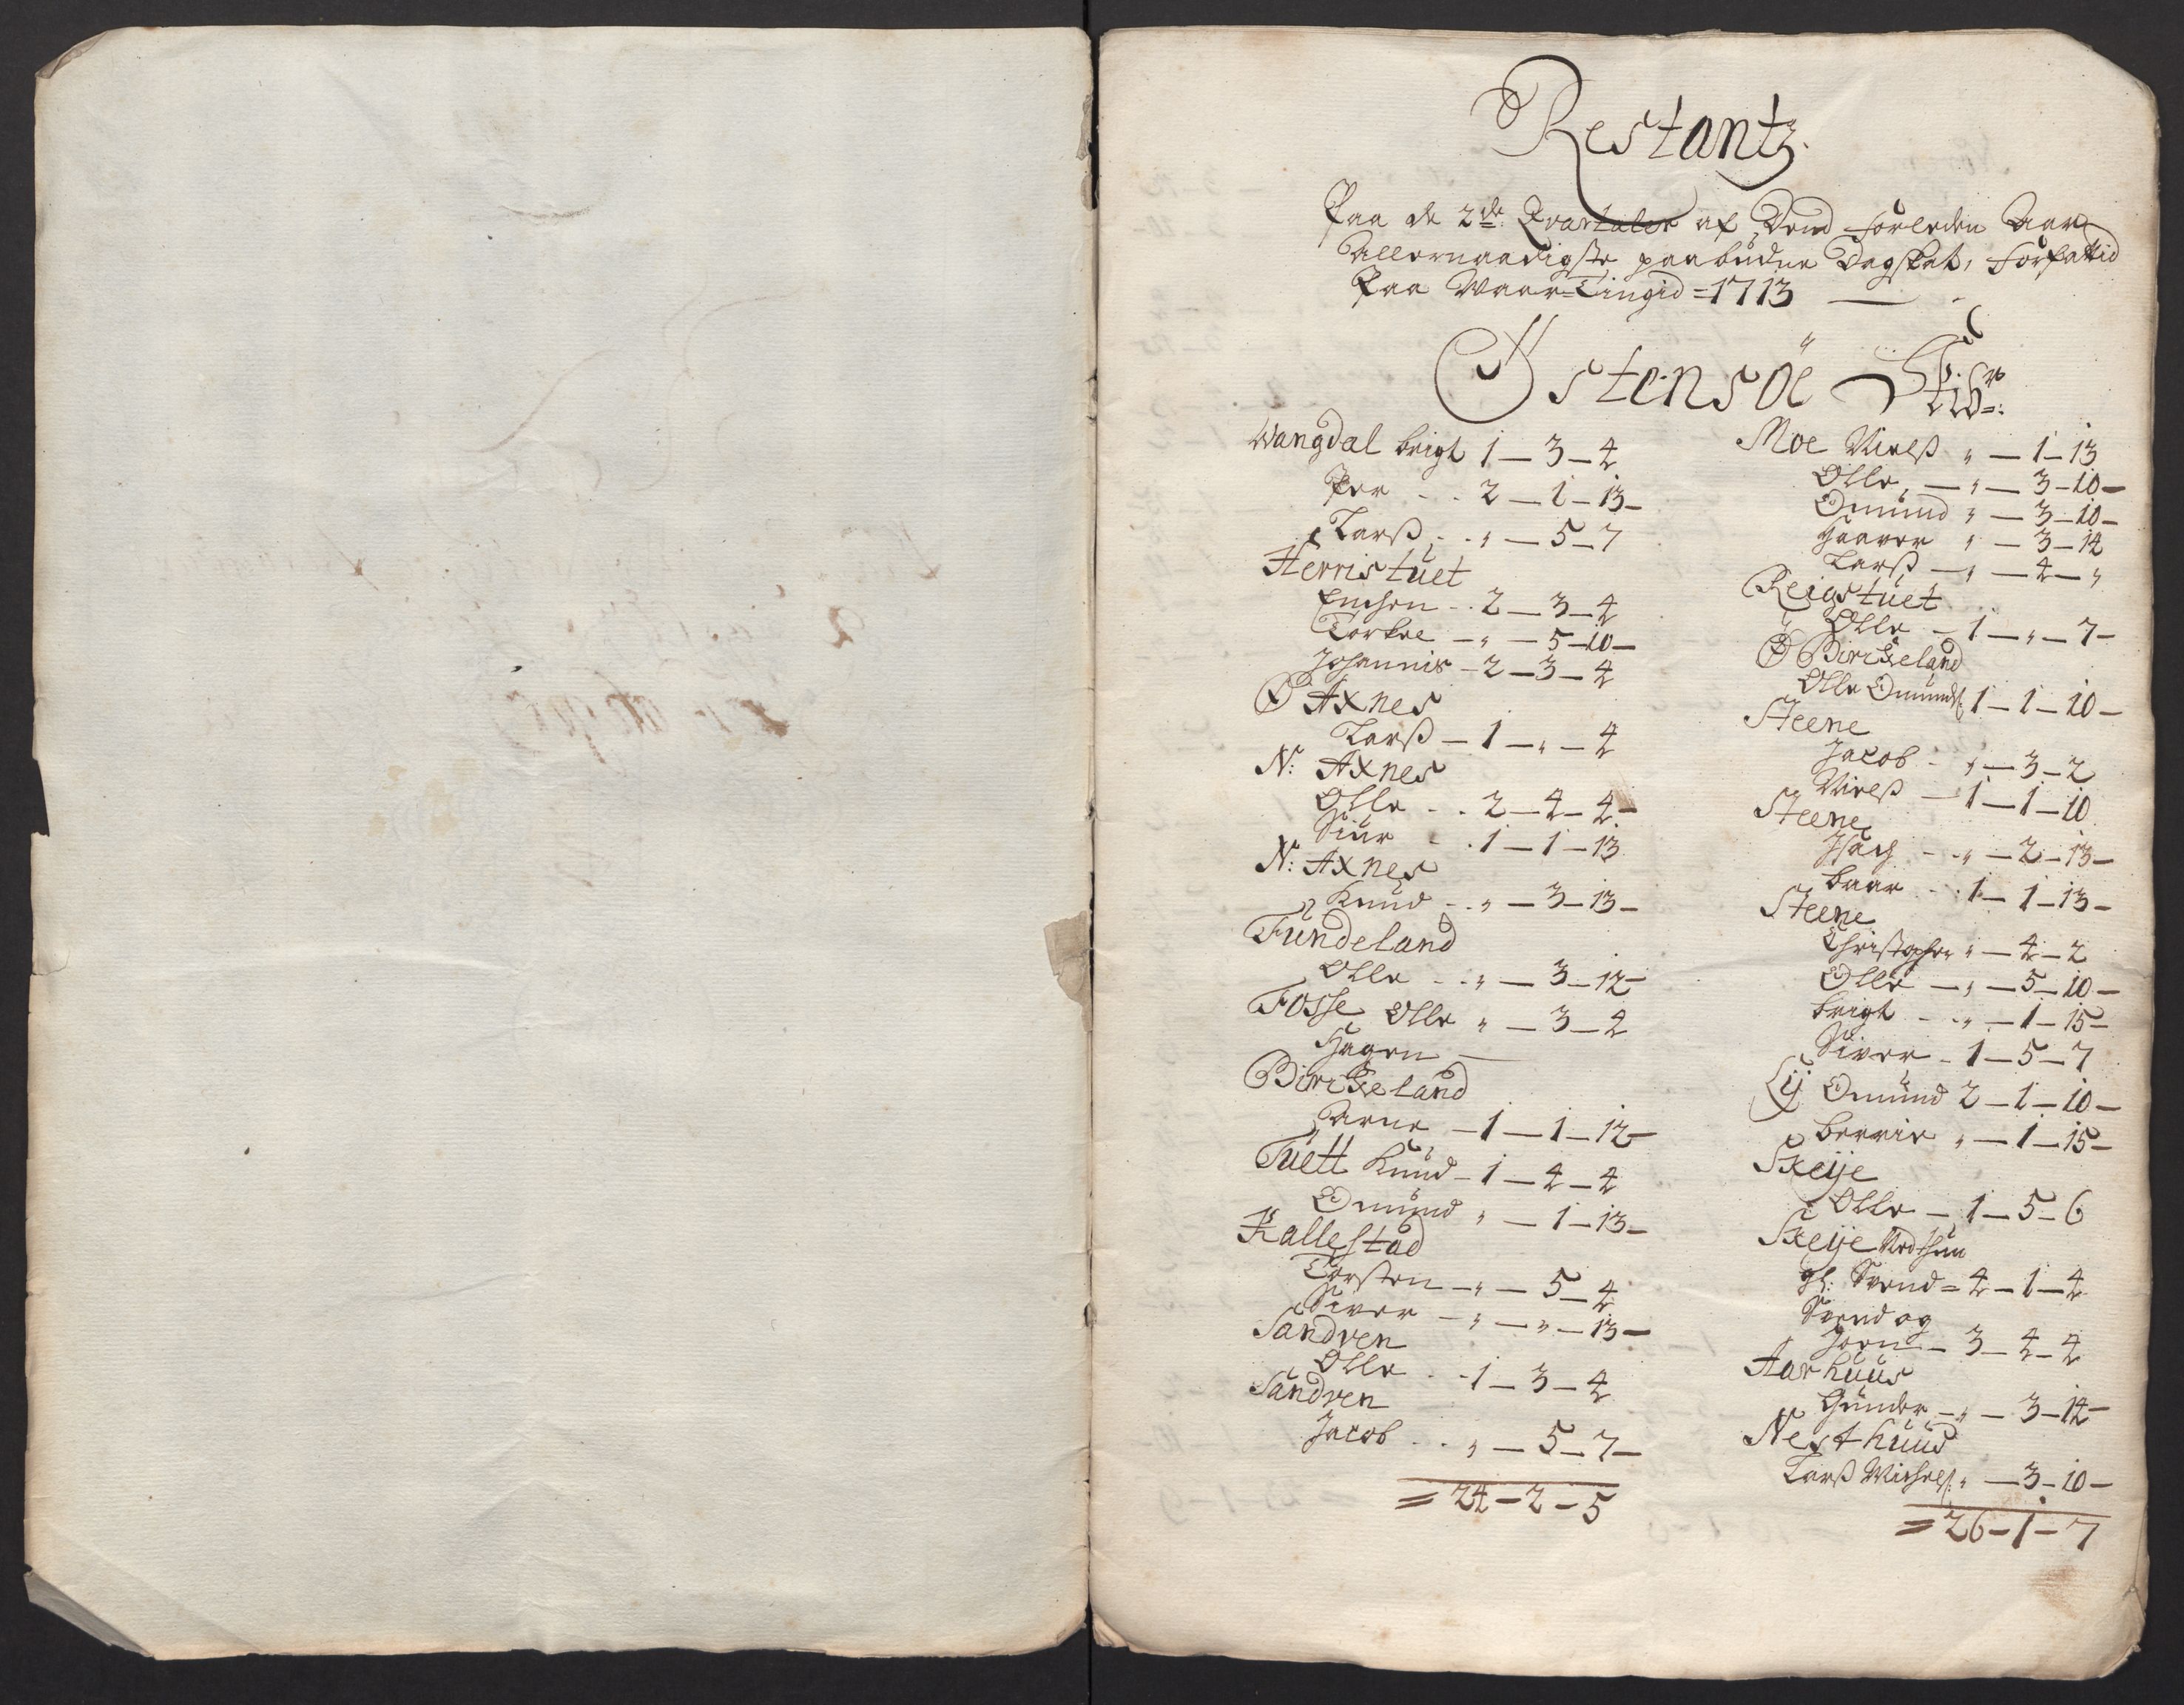 Restantz
Paa de 2de Qvartaler af Dend forleden Aar
Allernaadigste paabudne Dagskat, forfattid
Paa Waar=Tingid = 1713
Østensöe Skibr:
Wangdal brigt 1 — 3 — 4
Per - - 2 — 1 — 13 —
Larß - - „ — 5 — 7
Herristuet
- - 2 — 3 — 4
Torkel — „ — 5 — 10 —
Johannis — 2 — 3 — 4
Ø Axnes
Larß — 1 — „ — 4
N: Axnes
Olle - - 2 — 4 — 4 —
Siur - - 1 — 1 — 13
N: Axnes
Knud - - „ — 3 — 13 —
Fundeland
Olle - - „ — 3 — 12 —
Fosse Olle „ — 3 — 2
Hagen —
Birckeland
Arne — 1 — 1 — 12 —
Tuett Knud — 1 — 4 — 4
Omund „ — 1 — 13 —
Kallestad
Torsten — „ — 5 — 4
Siver — „ — „ — 13 —
Sandven
Olle - - 1 — 3 — 4
Sandven
Jacob - - „ — 5 — 7 —
= 24 — 2 — 5
Moe Nielß „ — 1 — 13
Olle, — „ — 3 — 10 —
Omund „ — 3 — 10 —
Haaver „ — 3 — 14
Larß — „ — 4 — „
Reigstuet
Olle — 1 — „ — 7 —
Ø Birckeland
Olle Omunds: 1 — 1 — 10 —
Steene
Jacob - „ — 3 — 2
Nielß — 1 — 1 — 10
Steene
Isach - - „ — 2 — 13 —
baar - - 1 — 1 — 13 —
Steene
Christopher „ — 4 — 2
Olle — „ — 5 — 10 —
brigt - - „ — 1 — 15 —
Siver - 1 — 5 — 7
Lij Omund 2 — 1 — 10 —
berrie „ — 1 — 15 —
Skeije
Olle — 1 — 5 — 6
Skeije
gl: Svend = 4 — 1 — 4
Svend og
Joen — 3 — 4 — 4
Aarhuus
Gunder — „ — 3 — 14 —
Nesthuus
Larß Michels: „ — 3 — 10 —
= 26 — 1 — 7